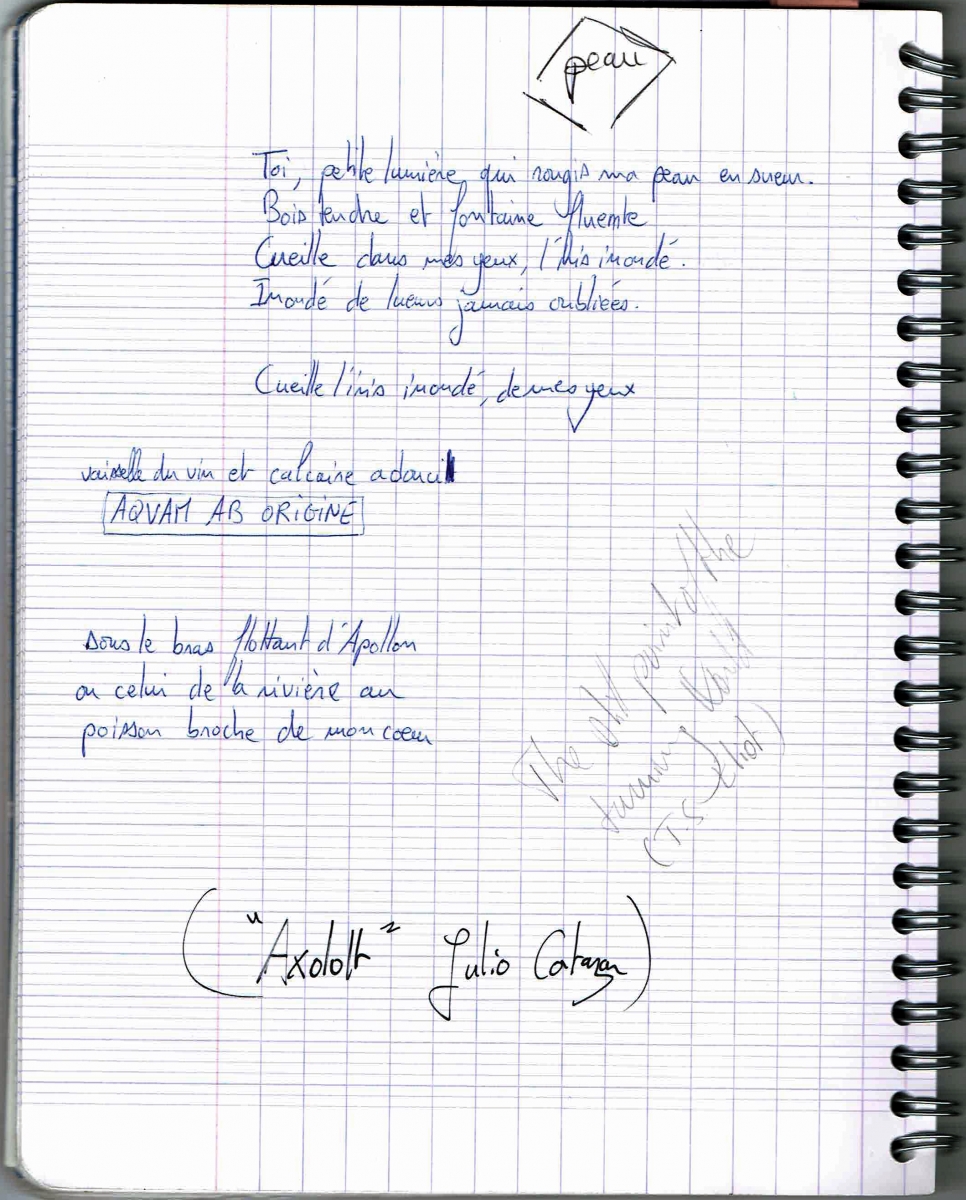 peau
Toi, petite lumière, qui rougis ma peau en sueur.
Bois tendre et fontaine fluente
Cueille dans mes yeux, l'iris inondé.
Inondé de lueurs jamais oubliées.
Cueille l'iris inondé, de mes yeux
vaisselle du vin et calcaire adouci
AQVAM AB ORIGINE
sous le bras flottant d'Apollon
ou celui de la rivière au
poisson broche de mon coeur
The still point of the
turning World
(T.S Eliot)
("Axolotl" Julio Cortazar)